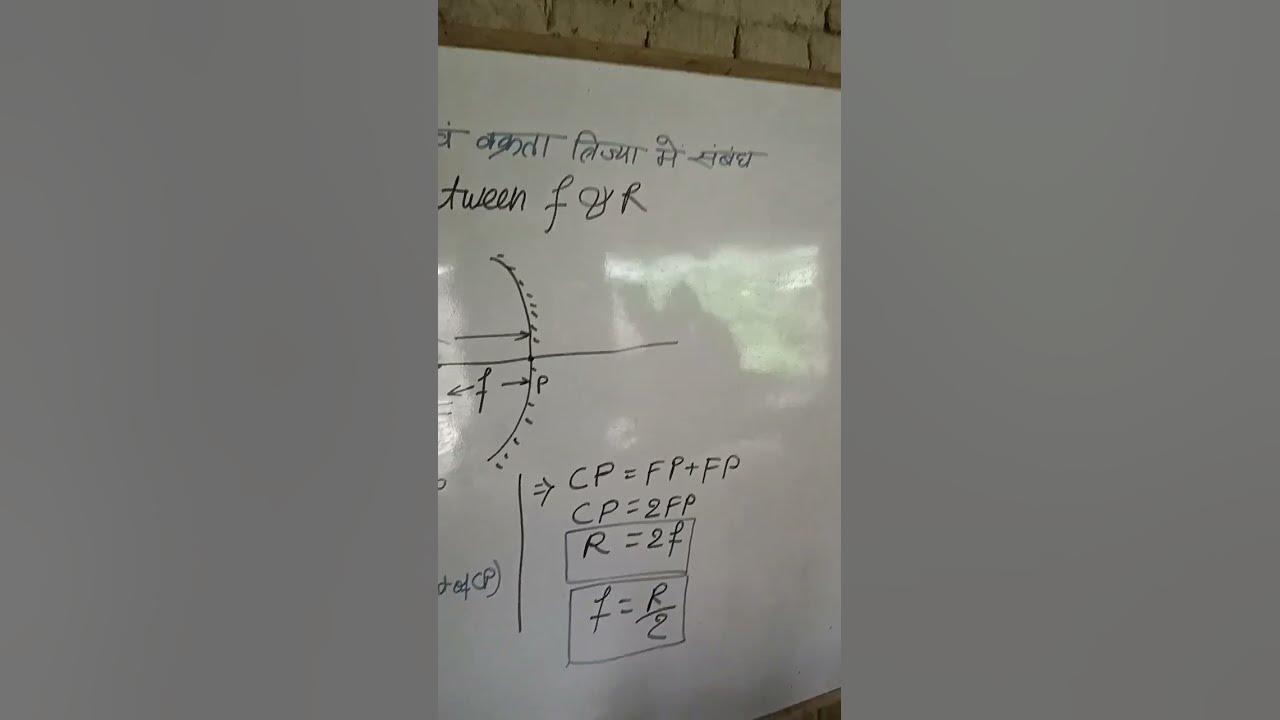 वं वक्रता त्रिज्या में संबंध
tween f & R
f
P
⇒ CP = FP + FP
CP = 2FP
R = 2f
of CP)
f = R/2